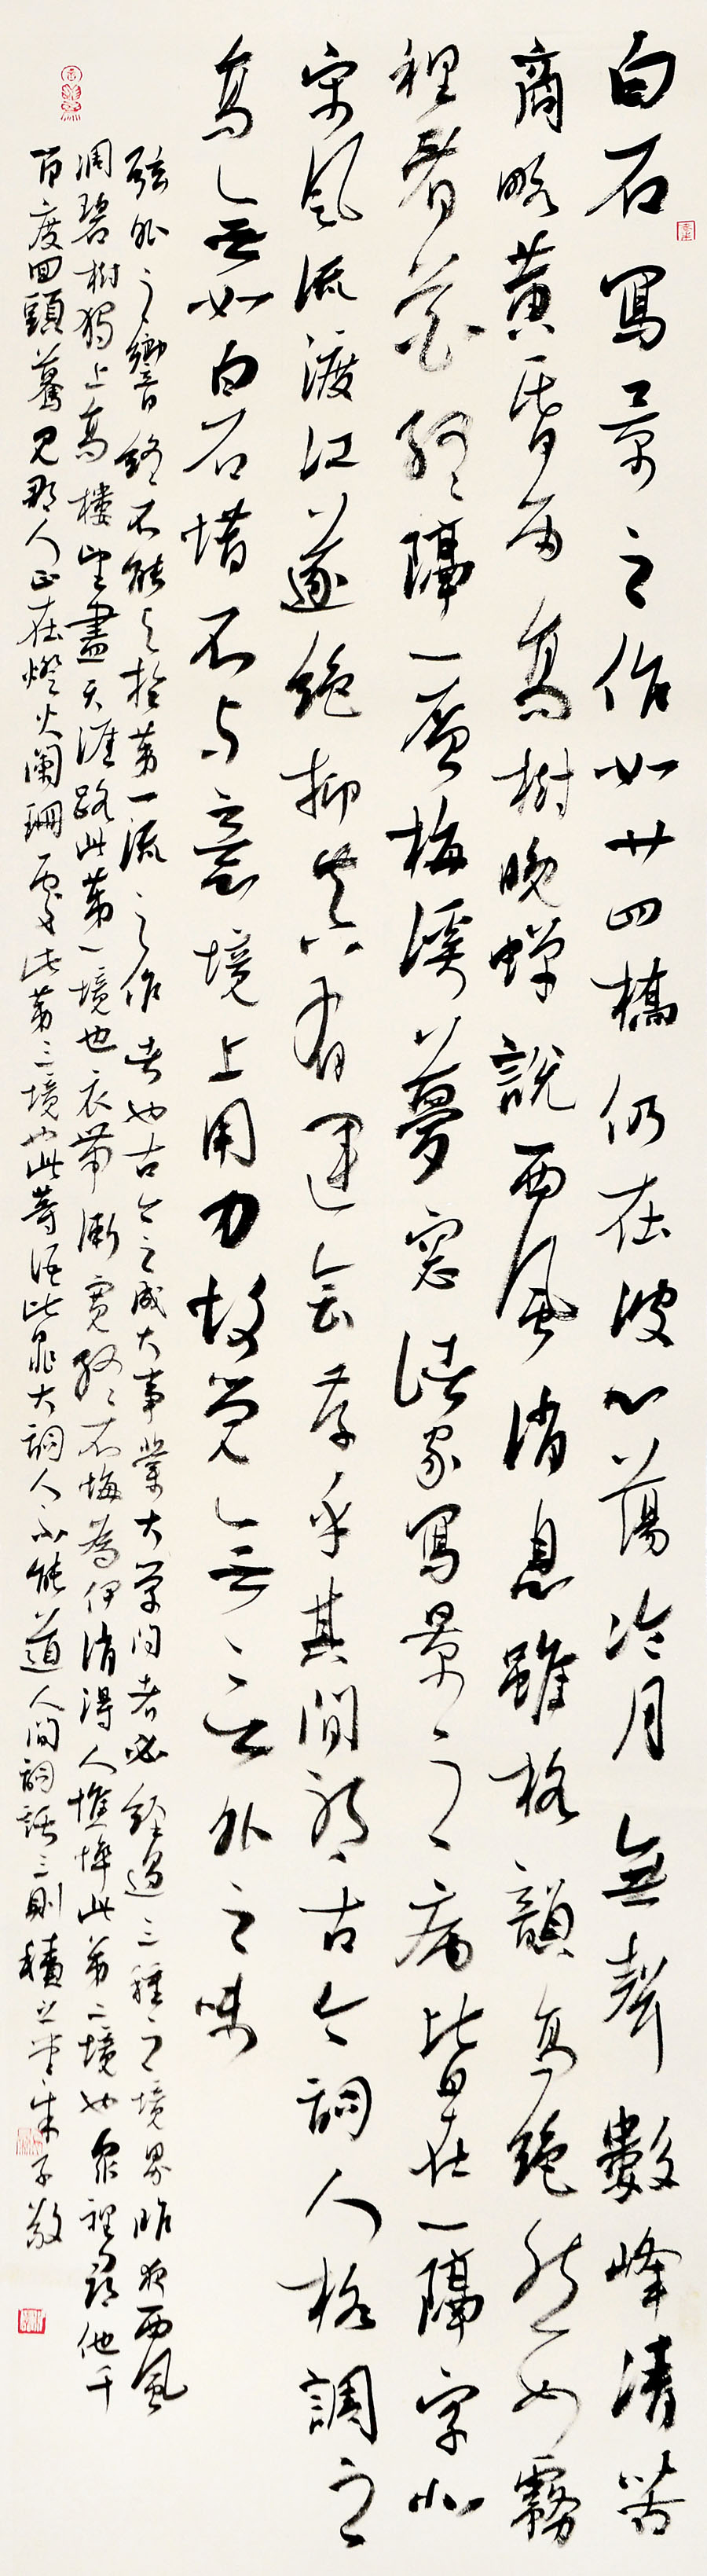 白石寫景之作如廿四橋仍在波心蕩冷月無聲數峰清苦
商略黃昏雨高樹晚蟬說西風消息雖格韻高絕然如霧
裡看花終隔一層梅溪夢窗諸家寫景之病皆在一隔字北
宋風流渡江遂絕抑真有運會存乎其間耶古今詞人格調之
高無如白石惜不於意境上用力故覺無言外之味
弦外之響終不能與於第一流之作者也古今之成大事業大學問者必經過三種之境界昨夜西風
凋碧樹獨上高樓望盡天涯路此第一境也衣帶漸寬終不悔為伊消得人憔悴此第二境也眾裡尋他千
百度回頭驀見那人正在燈火闌珊處此第三境也此等語皆非大詞人不能道人間詞話三則 積